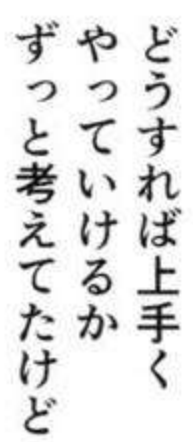 どうすれば上手く
やっていけるか
ずっと考えてたけど